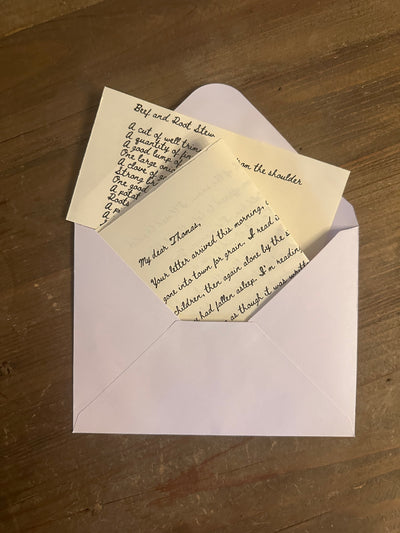 Beef and Root Stew
A cut of well trim
from the shoulder
A quantity of fin
A good lump of
One large onio
A clove of ga
Strong br
One good
A potat
Roots
A p
My dear Thomas,
Your letter arrived this morning,
gone into town for grain. I read i
children, then again alone by the
had fallen asleep. I'm reading
as though it was writt